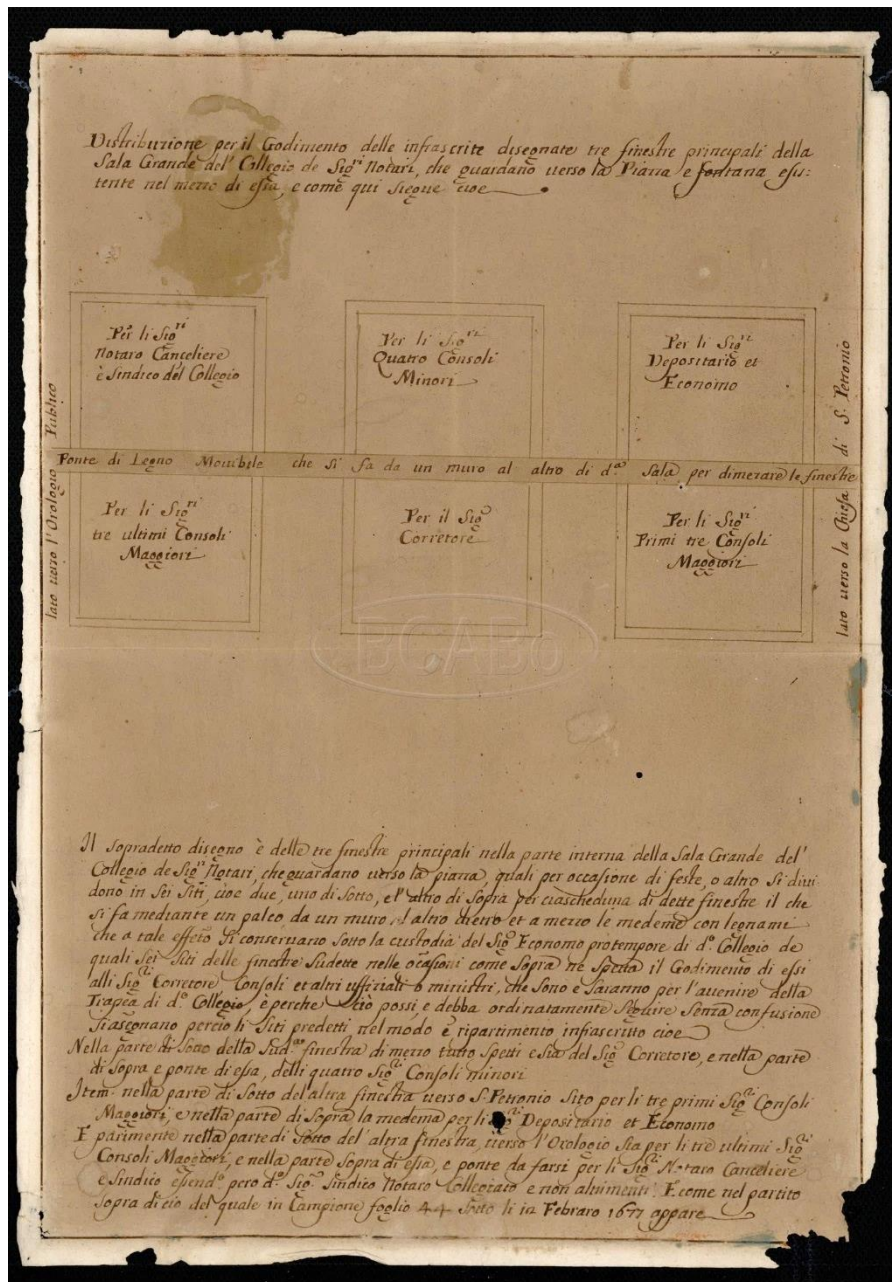 Distribuzione per il Godimento delle infrascrite disegnate tre finestre principali della
Sala Grande del' Collegio de Sig.ri Notari, che guardano verso la Piazza e Fontana esis=
tente nel mezzo di essa, e come qui siegue cioe
Per li Sig.ri
Notaro Canceliere
è Sindico del Collegio
Per li Sig.ri
Quatro Consoli
Minori
Per li Sig.ri
Depositario et
Economo
lato verso l'Orologio Publico
Ponte di Legno Movibile che si fa da un muro al altro di d.a Sala per dimezare le finestre
lato verso la Chiesa di S. Petronio
Per li Sig.ri
tre ultimi Consoli
Maggiori
Per il Sig.
Corretore
Per li Sig.ri
Primi tre Consoli
Maggiori
BCABo
Il sopradetto disegno è delle tre finestre principali nella parte interna della Sala Grande del'
Collegio de Sig.ri Notari, che guardano verso la piazza, quali per occasione di feste, o altro si divi
dono in Sei Siti, cioe due, uno di Sotto, e l'altro di Sopra per ciascheduna di dette finestre il che
si fa mediante un palco da un muro al altro dietro et a mezzo le medeme con legnami
che a tale effeto si conservano Sotto la custodia del Sig. Economo protempore di d.o Collegio de
quali Sei Siti delle finestre Sudette nelle ocasioni come Sopra ne Spetta il Godimento di essi
alli Sig.ri Corretore Consoli et altri uffiziali o ministri, che sono e saranno per l'avenire della
di d.o Collegio, è perche ciò possi, e debba ordinatamente Seguire Senza confusione
Siasegnano perciò li Siti predetti nel modo è ripartimento infrascritto cioe
Nella parte di Sotto della Sud.a finestra di mezzo tutto Spetti e sia del Sig. Corretore, e nella parte
di Sopra e ponte di essa, delli quatro Sig.ri Consoli minori
Item nella parte di Sotto del altra finestra verso S. Petronio Sito per li tre primi Sig.ri Consoli
Maggiori, e nella parte di Sopra la medema per li Sig.ri Depositario et Economo
E parimente nella parte di Sotto del' altra finestra, verso l'Orologio Sia per li tre ultimi Sig.ri
Consoli Maggiori, e nella parte sopra di essa, e ponte da farsi per li Sig.ri Notaro Canceliere
e Sindico essend.o pero d.o Sig. Sindico Notaro Collegiato e non altrimenti. E come nel partito
sopra di cio del quale in Campione foglio 44 Sotto li in Febraro 1677 appare